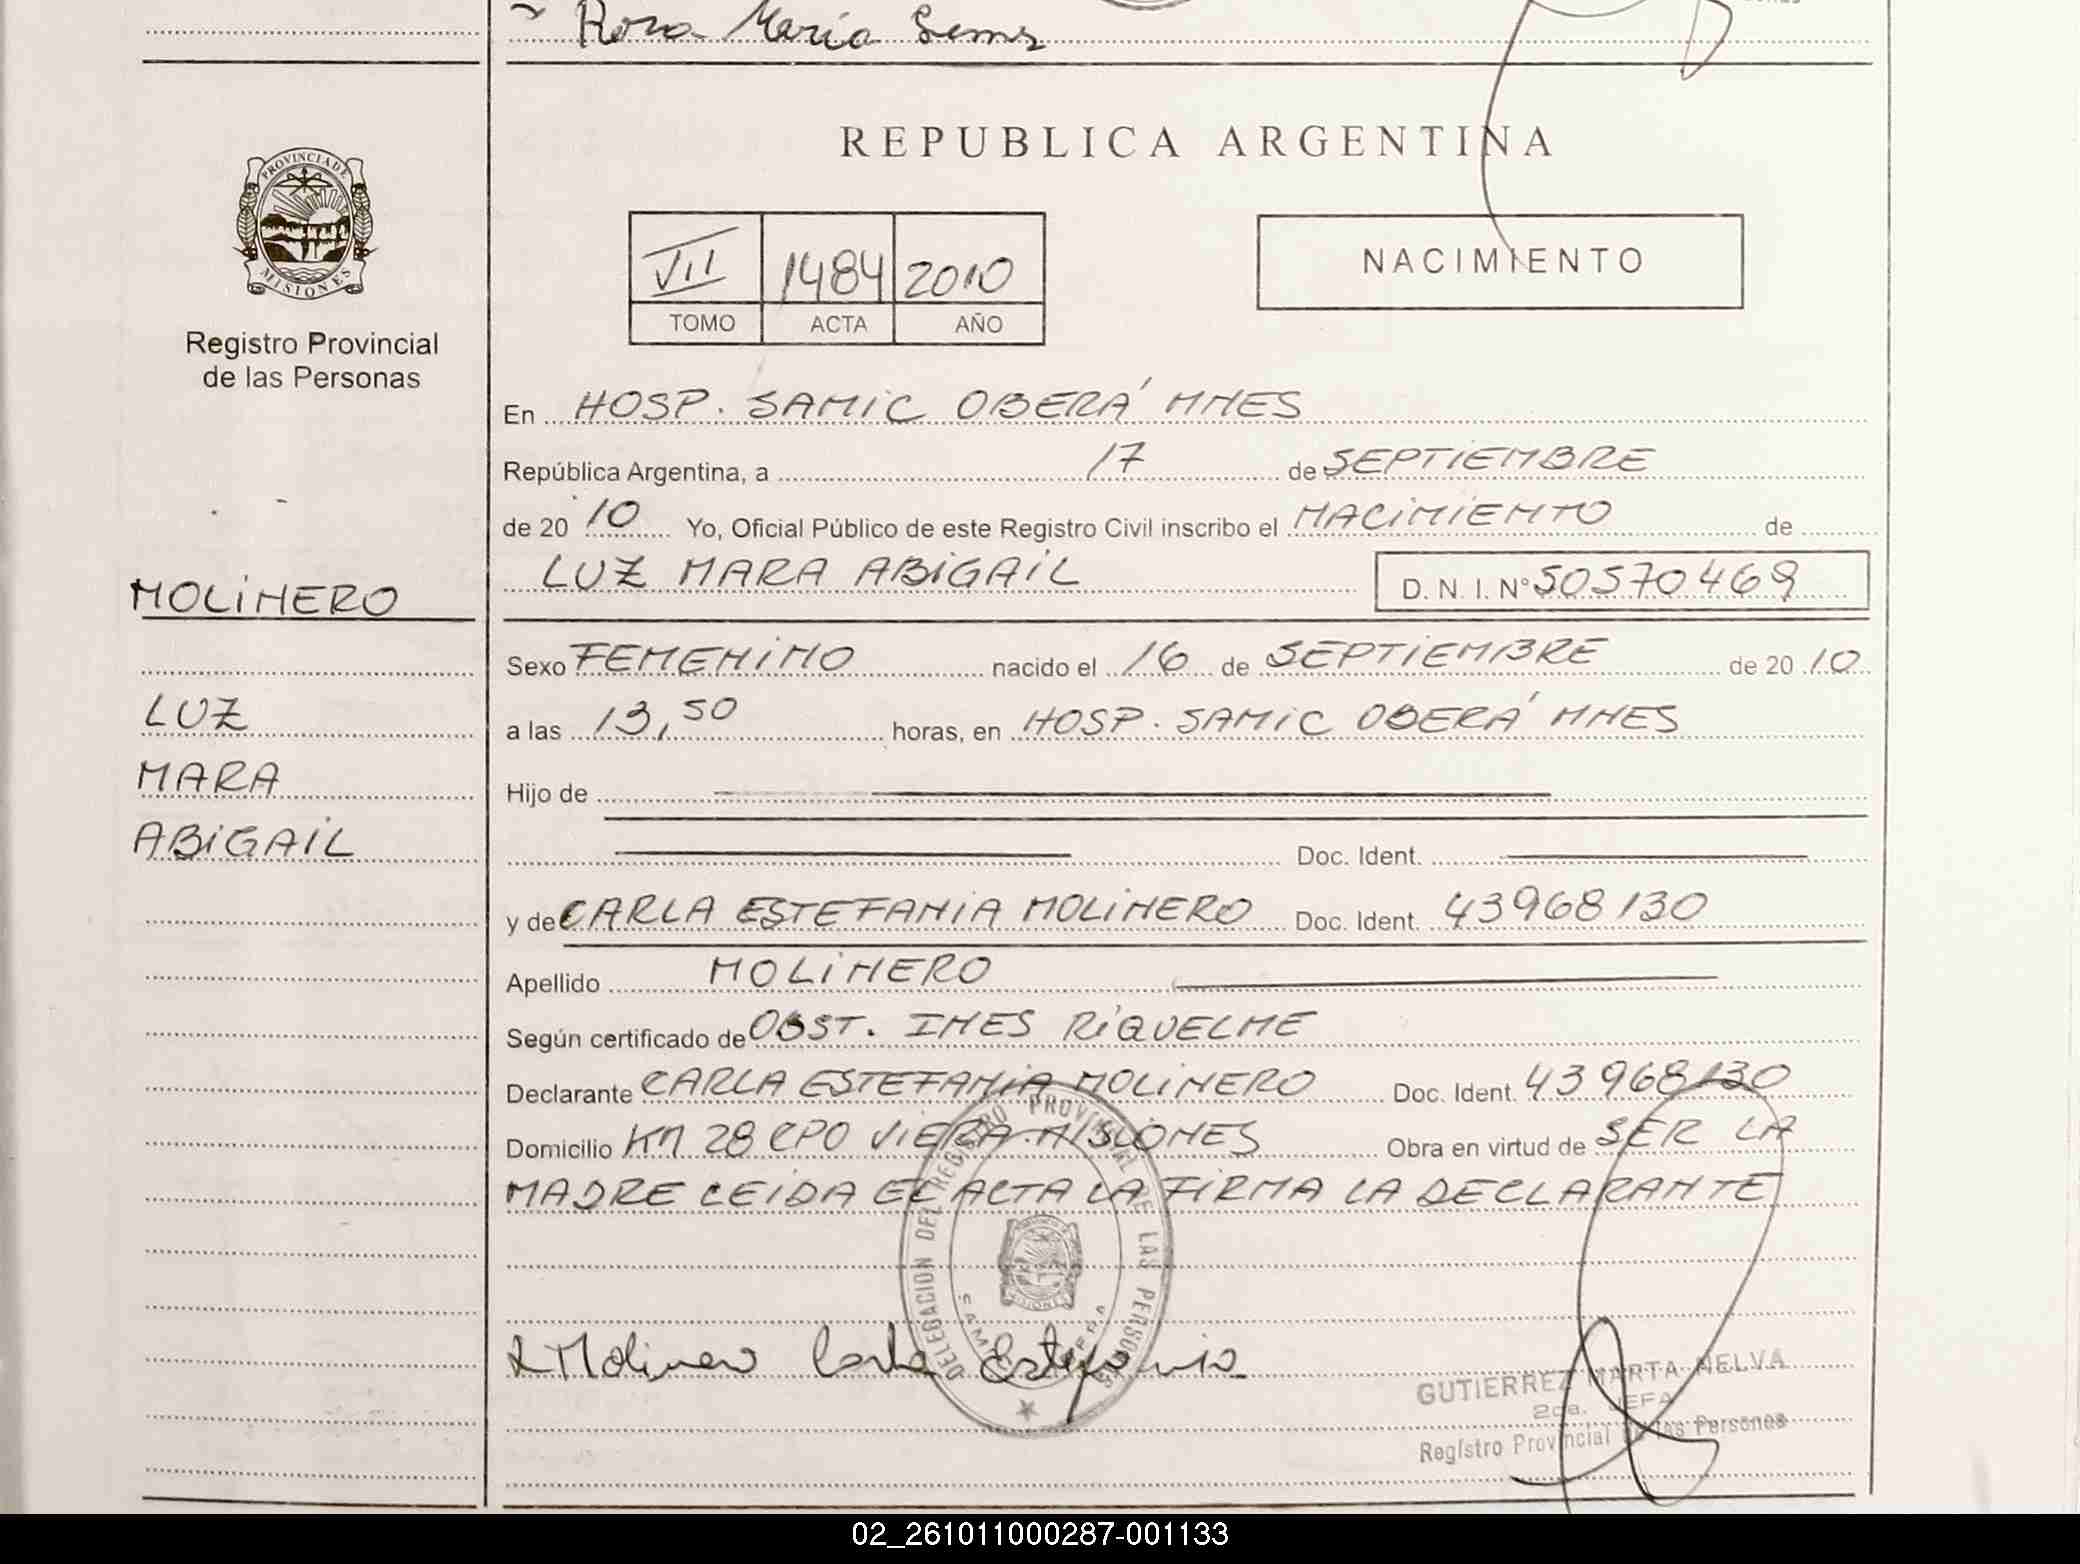 Rosa María
REPUBLICA ARGENTINA
PROVINCIA DE MISIONES
VII 1484 2010
TOMO ACTA AÑO
NACIMIENTO
Registro Provincial
de las Personas
En HOSP. SAMIC OBERÁ MNES
República Argentina, a 17 de SEPTIEMBRE
de 20 10 Yo, Oficial Público de este Registro Civil inscribo el NACIMIENTO de
LUZ MARA ABIGAIL D. N. I. N° 50570469
MOLINERO
LUZ
MARA
ABIGAIL
Sexo FEMENINO nacido el 16 de SEPTIEMBRE de 20 10
a las 13,50 horas, en HOSP. SAMIC OBERÁ MNES
Hijo de
Doc. Ident.
y de CARLA ESTEFANIA MOLINERO Doc. Ident. 43968130
Apellido MOLINERO
Según certificado de OBST. INES RIQUELME
Declarante CARLA ESTEFANIA MOLINERO Doc. Ident. 43968130
Domicilio KM 28 CPO VIERA MISIONES Obra en virtud de SER LA
MADRE LEIDA EL ACTA LA FIRMA LA DECLARANTE
DELEGACION DEL REGISTRO PROVINCIAL DE LAS PERSONAS
MISIONES
Molinero Carla Estefania
GUTIERREZ MARTA NELVA
2da. JEFA
Registro Provincial de las Personas
02_261011000287-001133